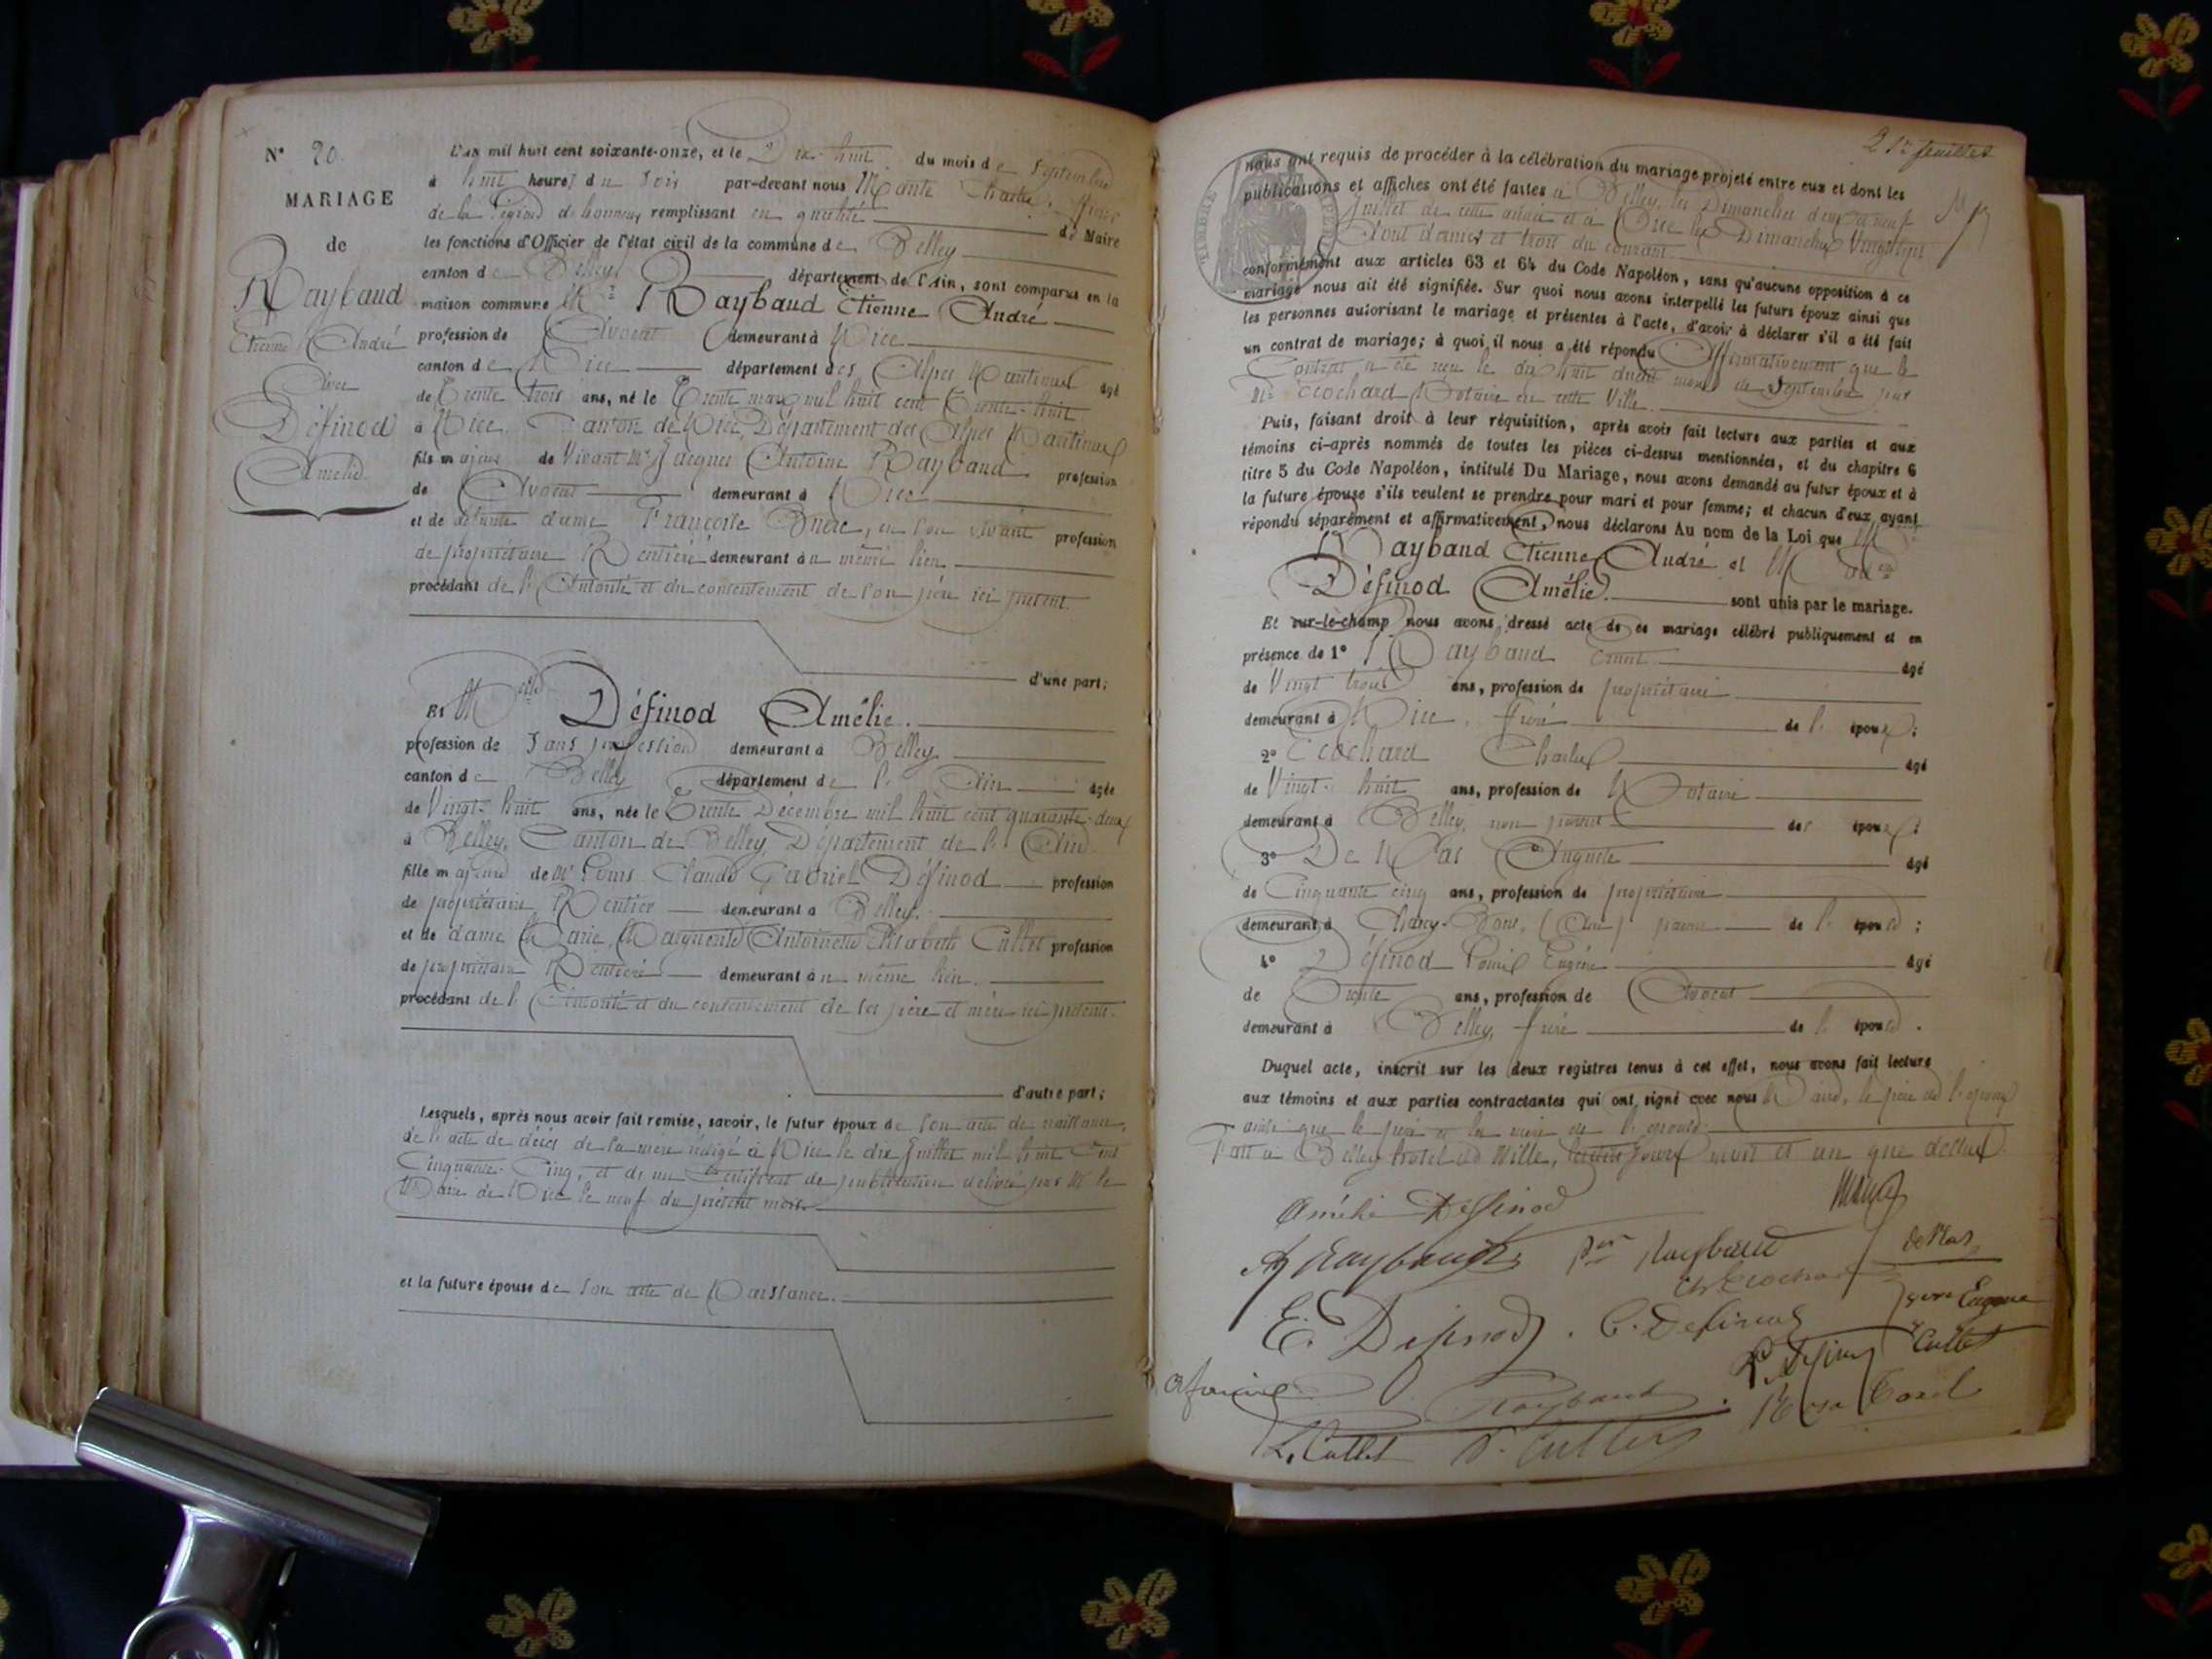 N° 20.
MARIAGE
de
Raybaud
Etienne André
Avec
Définod
Amélie.
L'an mil huit cent soixante-onze, et le Dix-huit du mois de Septembre
à huit heures du soir par-devant nous Charles
de la Légion d'honneur remplissant en qualité de Maire
les fonctions d'Officier de l'état civil de la commune de Belley
canton de Belley département de l'Ain, sont comparus en la
maison commune Mr Raybaud Etienne André
profession de Avocat demeurant à Nice
canton de Nice département des Alpes Maritimes âgé
de Trente trois ans, né le Trente mars mil huit cent Trente-huit
à Nice, Canton de Nice, Département des Alpes Maritimes
fils majeur de Vivant Mr Jacques Antoine Raybaud profession
de Avocat demeurant à Nice
et de défunte dame Françoise en son vivant profession
de propriétaire Rentière demeurant au même lieu.
procédant de l'Autorité et du consentement de son père ici présent.
d'une part;
Et Melle Définod Amélie.
profession de sans profession demeurant à Belley
canton de Belley département de l'Ain âgée
de Vingt-huit ans, née le Trente Décembre mil huit cent quarante-deux
à Belley, Canton de Belley, Département de l'Ain.
fille majeure de Mr Louis Claude Gabriel Définod profession
de propriétaire Rentier demeurant à Belley.
et de dame Marie, Marguerite Antoinette Elisabeth Cullet profession
de propriétaire Rentière demeurant au même lieu.
procédant de l'Autorité et du consentement de ses père et mère ici présents.
d'autre part;
Lesquels, après nous avoir fait remise, savoir, le futur époux de son acte de naissance,
de l'acte de décès de sa mère rédigé à Nice le dix Juillet mil huit Cent
Cinquante-Cinq, et de un Certificat de publication délivré par Mr le
Maire de Nice le neuf du présent mois.
et la future épouse de son acte de Naissance.
21e feuillet
nous ont requis de procéder à la célébration du mariage projeté entre eux et dont les
publications et affiches ont été faites à Belley, les Dimanches deux et neuf
Juillet de cette année et à Nice les Dimanches Vingt sept
Aout dernier et trois du courant.
conformément aux articles 63 et 64 du Code Napoléon, sans qu'aucune opposition à ce
mariage nous ait été signifiée. Sur quoi nous avons interpellé les futurs époux ainsi que
les personnes autorisant le mariage et présentes à l'acte, d'avoir à déclarer s'il a été fait
un contrat de mariage; à quoi il nous a été répondu Affirmativement que le
Contrat a été reçu le dix huit dudit mois de Septembre par
Me Ecochard Notaire en cette Ville.
Puis, faisant droit à leur réquisition, après avoir fait lecture aux parties et aux
témoins ci-après nommés de toutes les pièces ci-dessus mentionnées, et du chapitre 6
titre 5 du Code Napoléon, intitulé Du Mariage, nous avons demandé au futur époux et à
la future épouse s'ils veulent se prendre pour mari et pour femme; et chacun d'eux ayant
répondu séparément et affirmativement, nous déclarons Au nom de la Loi que Mr
Raybaud Etienne André et
Définod Amélie. sont unis par le mariage.
Et sur-le-champ nous avons dressé acte de ce mariage célébré publiquement et en
présence de 1° Raybaud âgé
de Vingt trois ans, profession de propriétaire
demeurant à Nice, frère de l'époux;
2° Ecochard Charles âgé
de Vingt-huit ans, profession de Notaire
demeurant à Belley, non parent des époux;
3° De Mas Auguste âgé
de Cinquante cinq ans, profession de propriétaire
demeurant à (Ain) de l'épouse;
4° Définod Louis Eugène âgé
de Trente ans, profession de Avocat
demeurant à Belley, frère de l'épouse.
Duquel acte, inscrit sur les deux registres tenus à cet effet, nous avons fait lecture
aux témoins et aux parties contractantes qui ont signé avec nous Maire, le père de l'époux
ainsi que le père et la mère de l'épouse.
Fait à Belley hotel de Ville, jour mois et an que dessus.
Amélie Definod
Raybaud
E. Definod. C. Definod
Eugène Cullet
Raybaud
L. Cullet